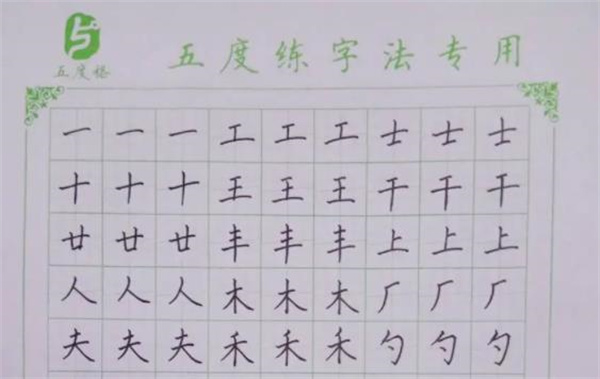 五度格
五度练字法专用
一一一工工工士士士
十十十王王王干干干
廿廿廿丰丰丰上上上
人人人木木木厂厂厂
夫夫夫禾禾禾勺勺勺